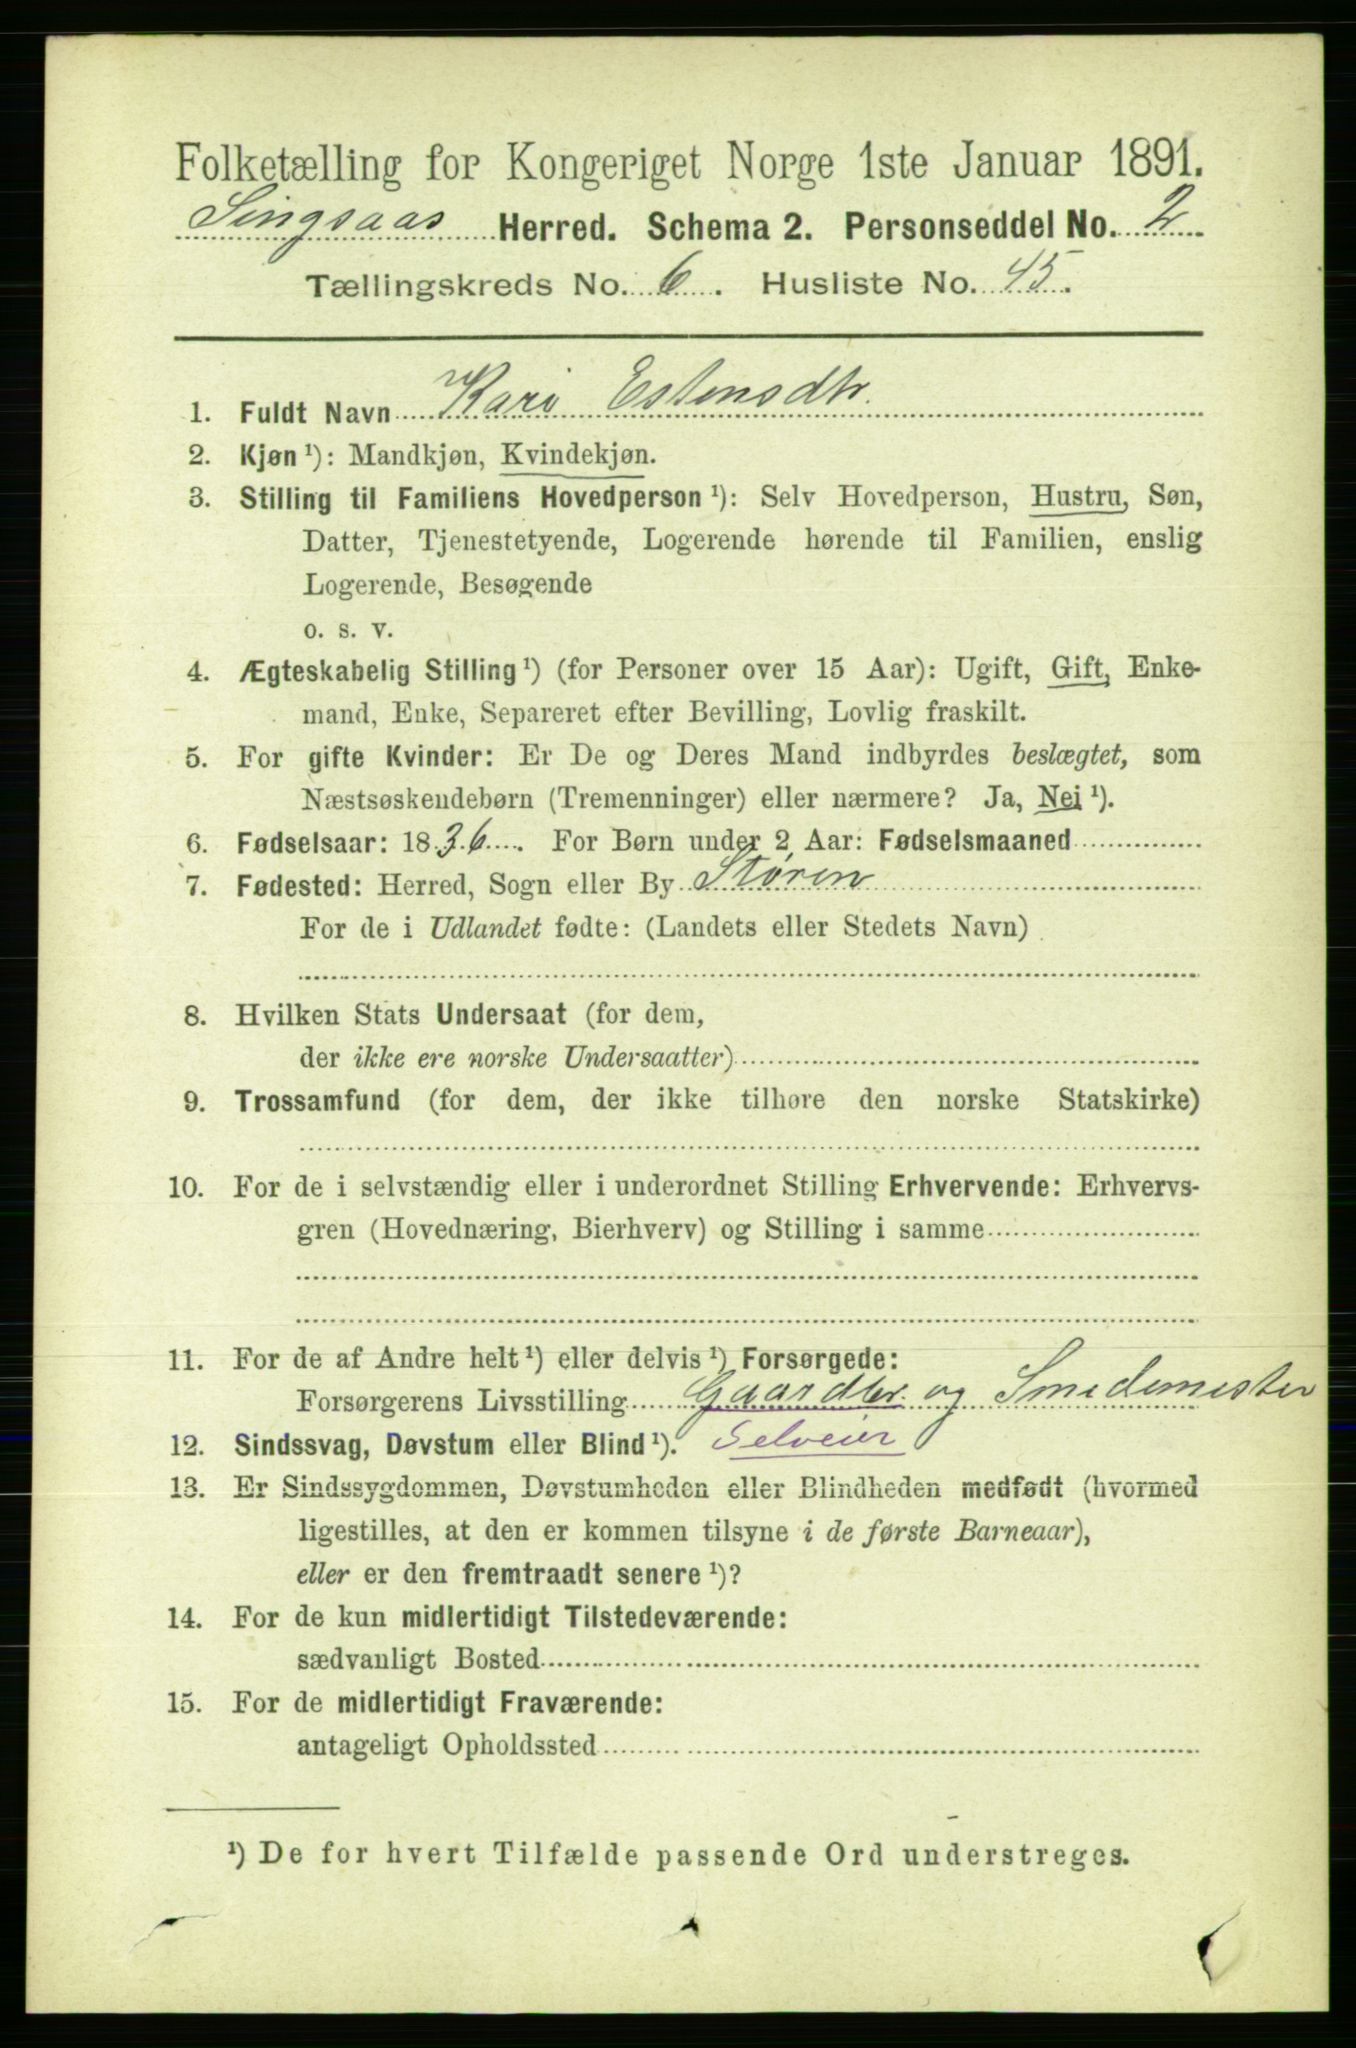 Folketælling for Kongeriget Norge 1ste Januar 1891.
Singsaas Herred. Schema 2. Personseddel No. 2
Tællingskreds No. 6. Husliste No. 45.
1. Fuldt Navn Kari Estensdtr.
2. Kjøn ¹): Mandkjøn, Kvindekjøn.
3. Stilling til Familiens Hovedperson ¹): Selv Hovedperson, Hustru, Søn,
Datter, Tjenestetyende, Logerende hørende til Familien, enslig
Logerende, Besøgende
o. s. v.
4. Ægteskabelig Stilling ¹) (for Personer over 15 Aar): Ugift, Gift, Enke-
mand, Enke, Separeret efter Bevilling, Lovlig fraskilt.
5. For gifte Kvinder: Er De og Deres Mand indbyrdes beslægtet, som
Næstsøskendebørn (Tremenninger) eller nærmere? Ja, Nei ¹).
6. Fødselsaar: 1836. For Børn under 2 Aar: Fødselsmaaned
7. Fødested: Herred, Sogn eller By Støren
For de i Udlandet fødte: (Landets eller Stedets Navn)
8. Hvilken Stats Undersaat (for dem,
der ikke ere norske Undersaatter)
9. Trossamfund (for dem, der ikke tilhøre den norske Statskirke)
10. For de i selvstændig eller i underordnet Stilling Erhvervende: Erhvervs-
gren (Hovednæring, Bierhverv) og Stilling i samme
11. For de af Andre helt ¹) eller delvis ¹) Forsørgede:
Forsørgerens Livsstilling Gaardbr. og Smedemester
12. Sindssvag, Døvstum eller Blind ¹). Selveier
13. Er Sindssygdommen, Døvstumheden eller Blindheden medfødt (hvormed
ligestilles, at den er kommen tilsyne i de første Barneaar),
eller er den fremtraadt senere ¹)?
14. For de kun midlertidigt Tilstedeværende:
sædvanligt Bosted
15. For de midlertidigt Fraværende:
antageligt Opholdssted
¹) De for hvert Tilfælde passende Ord understreges.